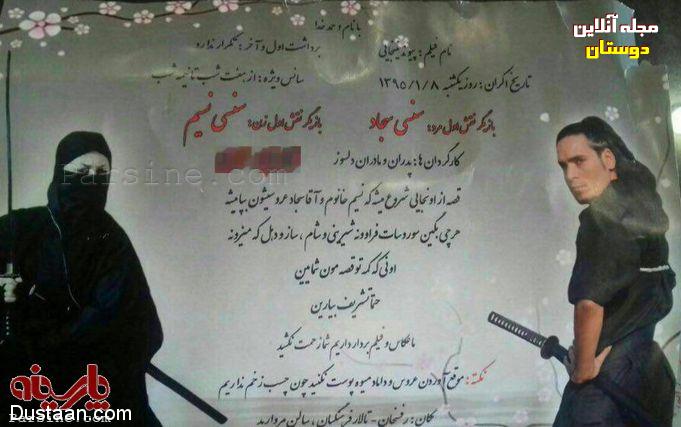 مجله آنلاین
دوستان
با نام و حمد خدا
نام فیلم: پیوند نینجایی
برداشت اول و آخر: تکرار نداره
تاریخ اکران: روز یکشنبه ۱۳۹۵/۱/۸
سانس ویژه: از هفت شب تا نیمه شب
بازیگر نقش اول مرد: سنسی سجاد
بازیگر نقش اول زن: سنسی نسیم
کارگردان ها: پدران و مادران دلسوز
Parsine.com
قصه از اونجایی شروع میشه که نسیم خانوم و آقا سجاد عروسیشون بپا میشه
هرچی بگین سورو سات فراوونه شیرینی و شام، ساز و دهل که میزونه
اونی که کمه تو قصه مون شمایین
حتما تشریف بیارین
ما عکاس و فیلم بردار داریم شما زحمت نکشید
نکته: موقع آوردن عروس و داماد میوه پوست نکنید چون چسب زخم نداریم
مکان: رفسنجان - تالار فرهنگیان، سالن مروارید
پارسینه
Parsine.com
Dustaan.com